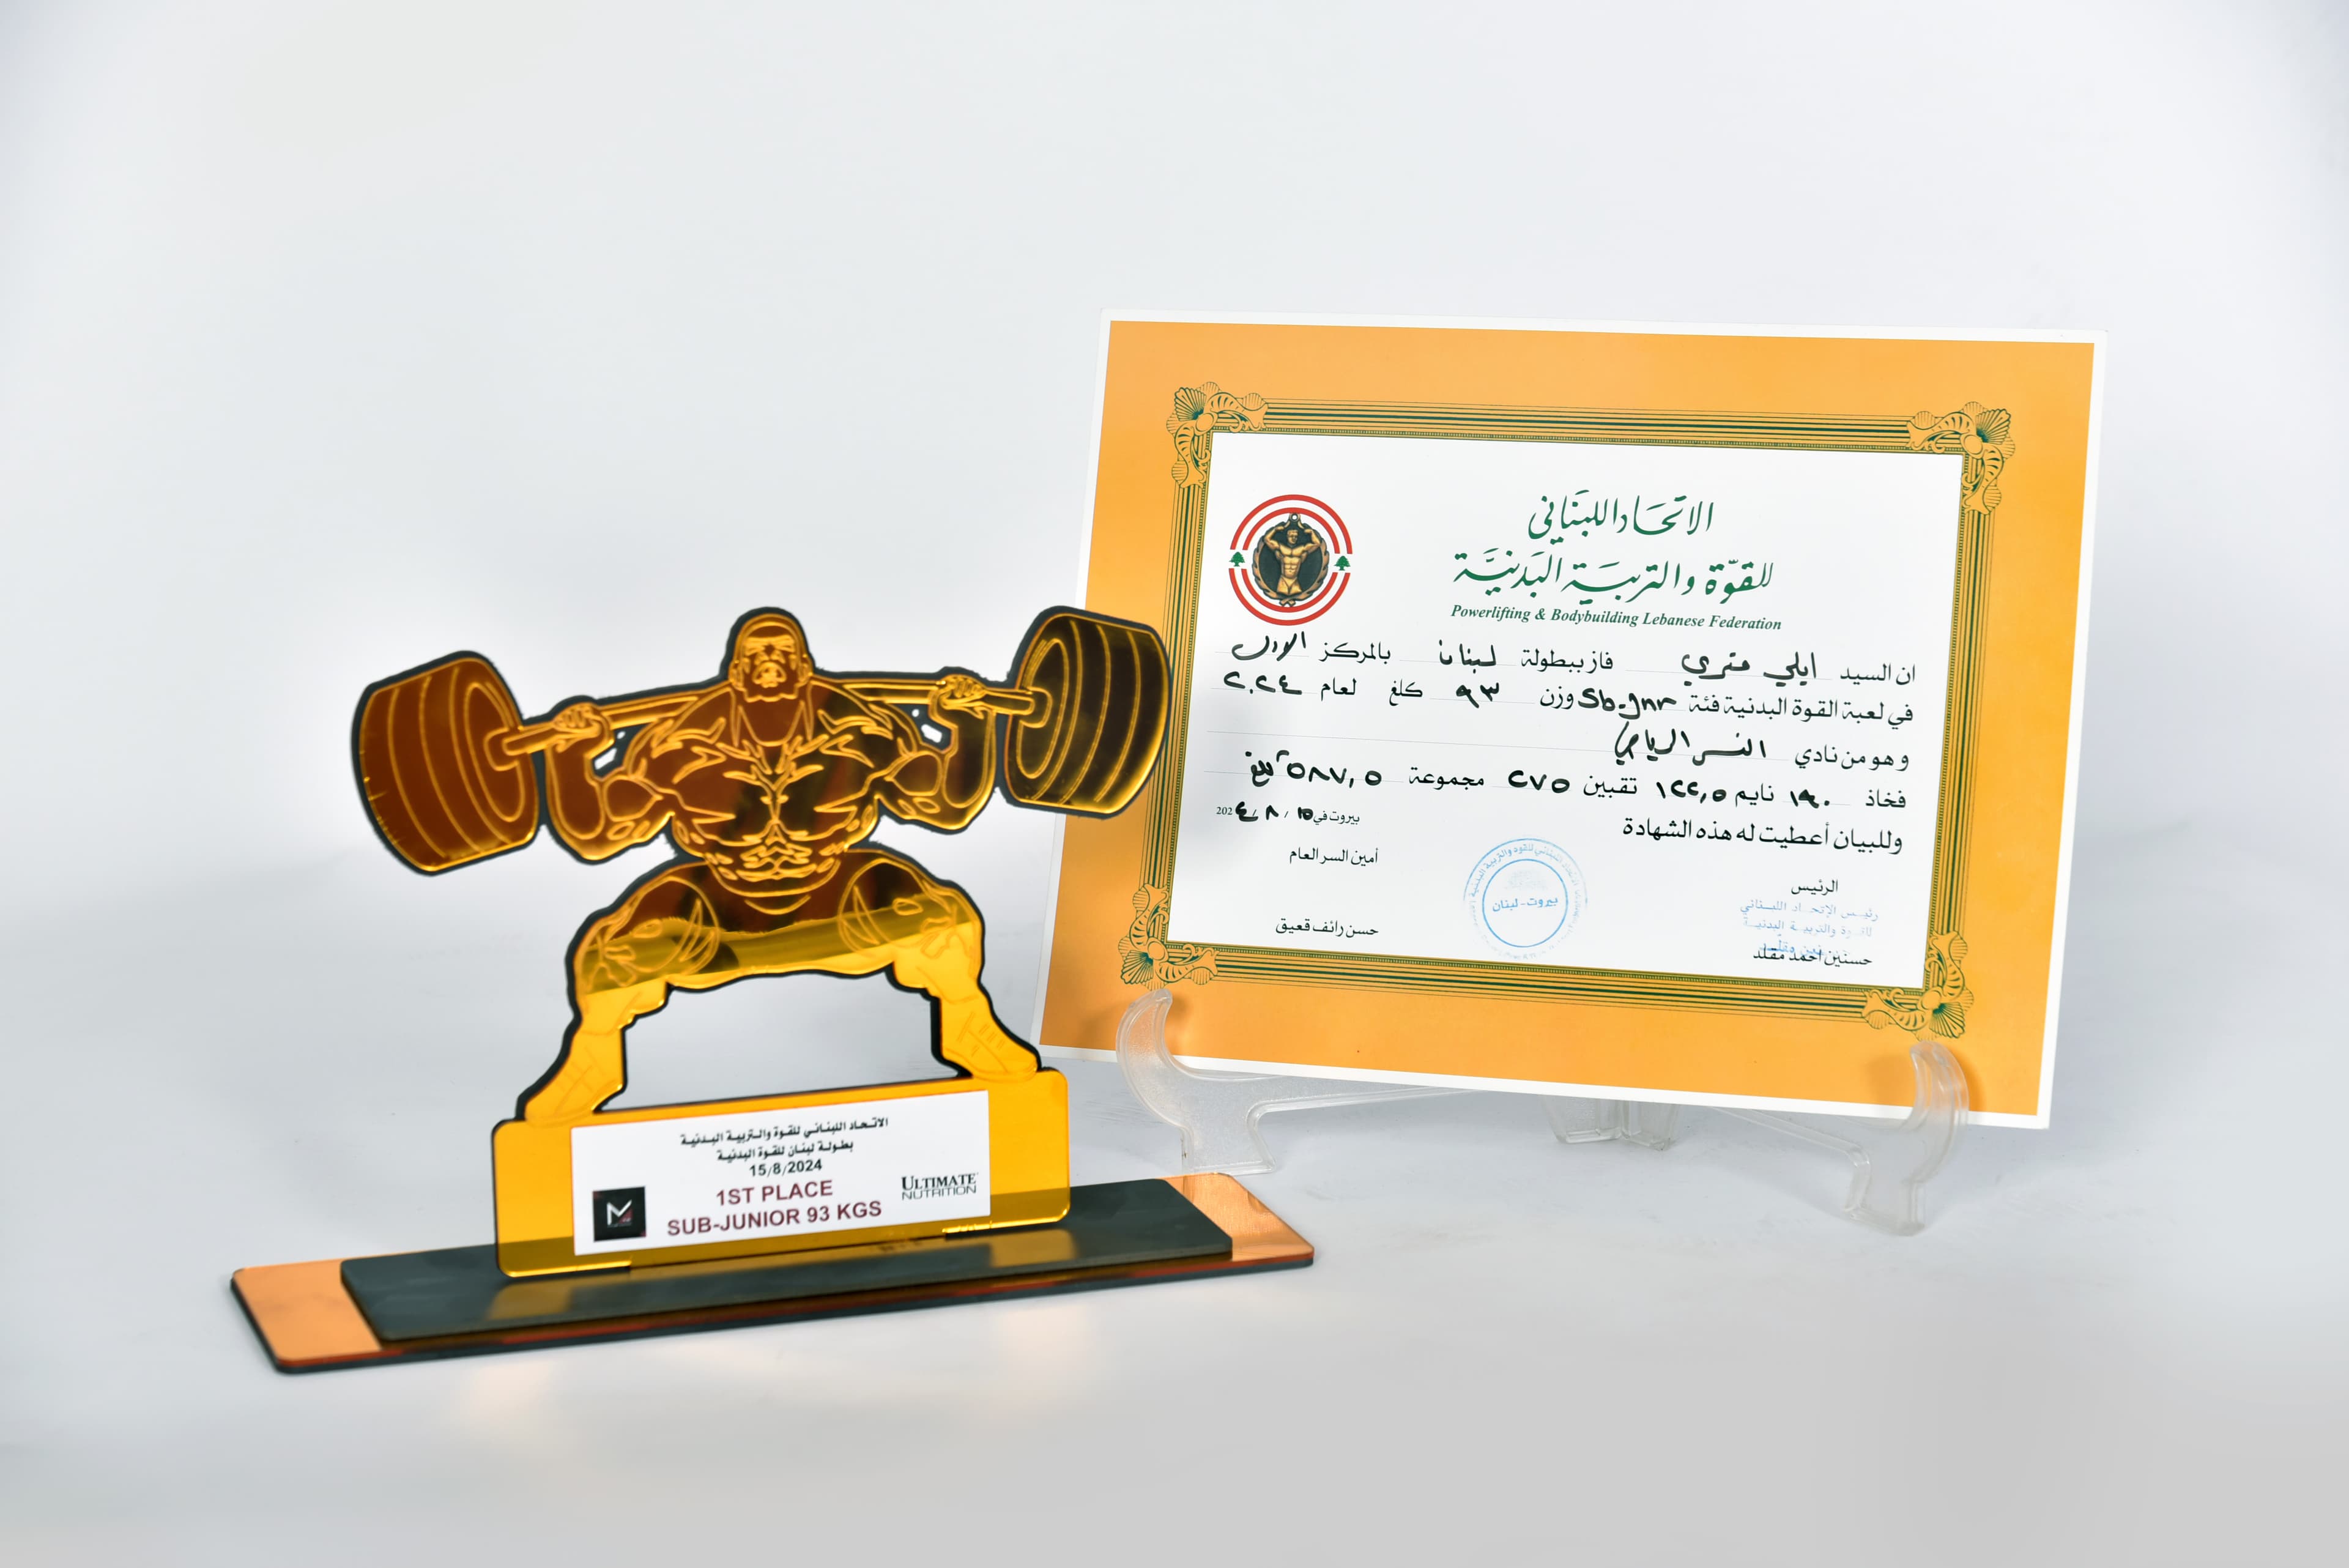 الاتحاد اللبناني للقوة والتربية البدنية
بطولة لبنان للقوة البدنية
15/8/2024
1ST PLACE
SUB-JUNIOR 93 KGS
ULTIMATE
NUTRITION
الاتحَاد اللبنَاني
للقوّة والتربيَة البَدنيَّة
Powerlifting & Bodybuilding Lebanese Federation
ان السيد ايلي متري فاز ببطولة لبنان بالمركز الاول
في لعبة القوة البدنية فئة Sb-Jnr وزن ٩٣ كلغ لعام ٢٠٢٤
وهو من نادي النسر الرياضي
فخاذ ١٩٠ نايم ١٢٢,٥ تقبين ٢٧٥ مجموعة ٥٨٧,٥ كلغ
وللبيان أعطيت له هذه الشهادة
بيروت في ١٥ / ٨ / 202٤
الرئيس
رئيس الإتحاد اللبناني
للقوة والتربية البدنية
حسنين احمد مقلد
أمين السر العام
حسن رائف قعيق
بيروت - لبنان